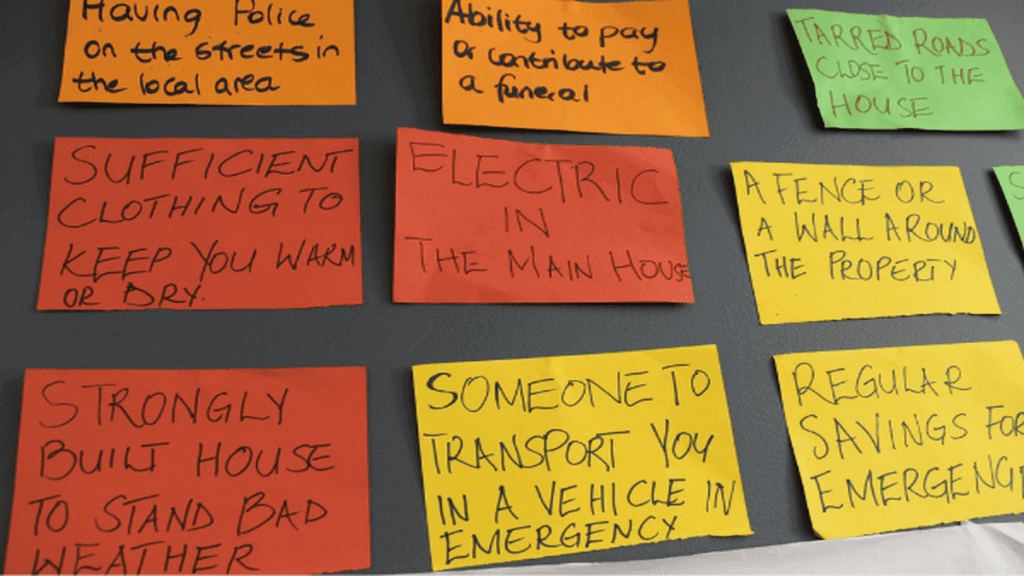 Having Police
on the streets in
the local area
Ability to pay
or contribute to
a funeral
TARRED ROADS
CLOSE TO THE
HOUSE
SUFFICIENT
CLOTHING TO
KEEP YOU WARM
OR DRY.
ELECTRIC
IN
THE MAIN HOUSE
A FENCE OR
A WALL AROUND
THE PROPERTY
S
STRONGLY
BUILT HOUSE
TO STAND BAD
WEATHER
SOMEONE TO
TRANSPORT YOU
IN A VEHICLE IN
EMERGENCY.
REGULAR
SAVINGS FOR
EMERGENC